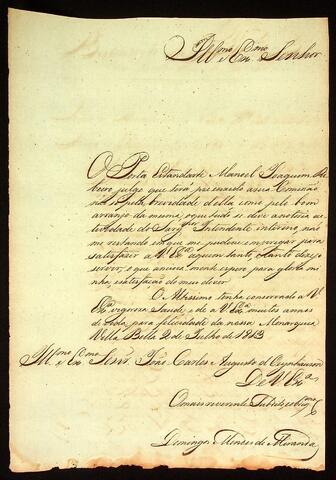 Ill.mo e Ex.mo Senhor
O Porta Estandarte Manoel Joaquim Ri-
beiro julgo que terá preenxido a sua Comissão
não só pela brevidade della como pelo bom
arranjo da mesma; o que tudo se deve a notoria ac-
tividade do Intendente interino não
me restando em que me pudece empregar para
satisfazer a V. Ex.a a quem tanto, e tanto dezejo
servir, e que anciozam.e espero para gloria mi-
nha, e satisfação do meu dever.
O Altissimo tenha conservado a V.
Ex.a vigoroza Saude, e de a V. Ex.a muitos annos
de vida para felicidade da nossa Monarquia
Villa Bella 2 de Julho de 1813
Ill.mo e Ex.mo Senr. João Carlos Augusto d'Oeynhausen
De V. Ex.a
O mais reverente Subdito e obrig.mo
Domingos Menses de Miranda